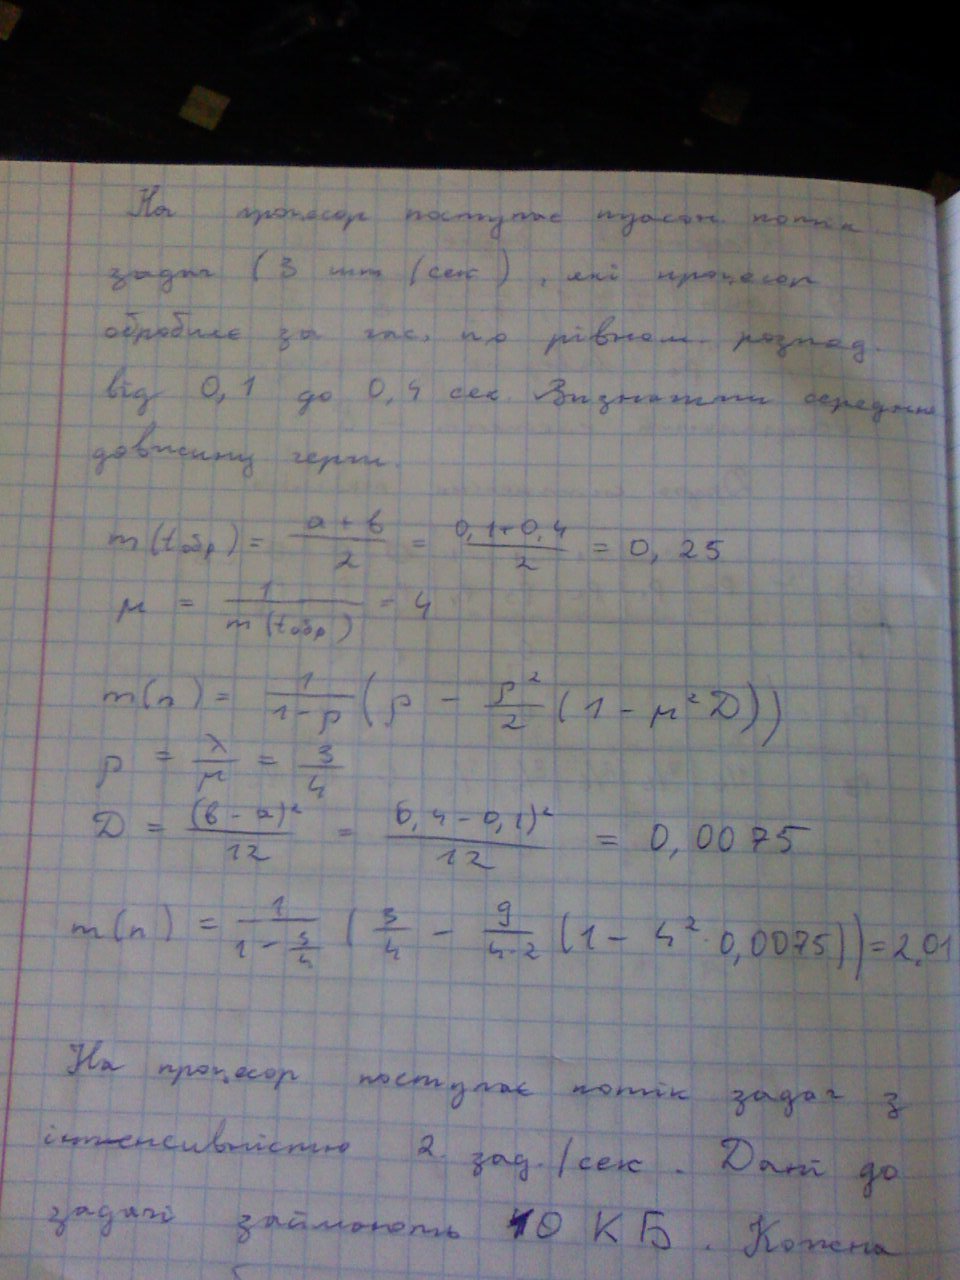 На процесор поступає пуасон. потік
задач (3 шт/сек), які процесор
обробляє за час, по рівном. розпод.
від 0,1 до 0,4 сек. Визначити середню
довжину черги.
m(tобр) = (a+b)/2 = (0,1+0,4)/2 = 0,25
μ = 1/m(tобр) = 4
m(n) = 1/(1-ρ) (ρ - ρ²/2 (1 - μ²D))
ρ = λ/μ = 3/4
D = (b-a)²/12 = 0,4-0,1)²/12 = 0,0075
m(n) = 1/(1-3/4) (3/4 - 9/(4·2) (1 - 4²·0,0075)) = 2,01
На процесор поступає потік задач з
інтенсивністю 2 зад./сек. Дані до
задачі займають 10 КБ. Кожна